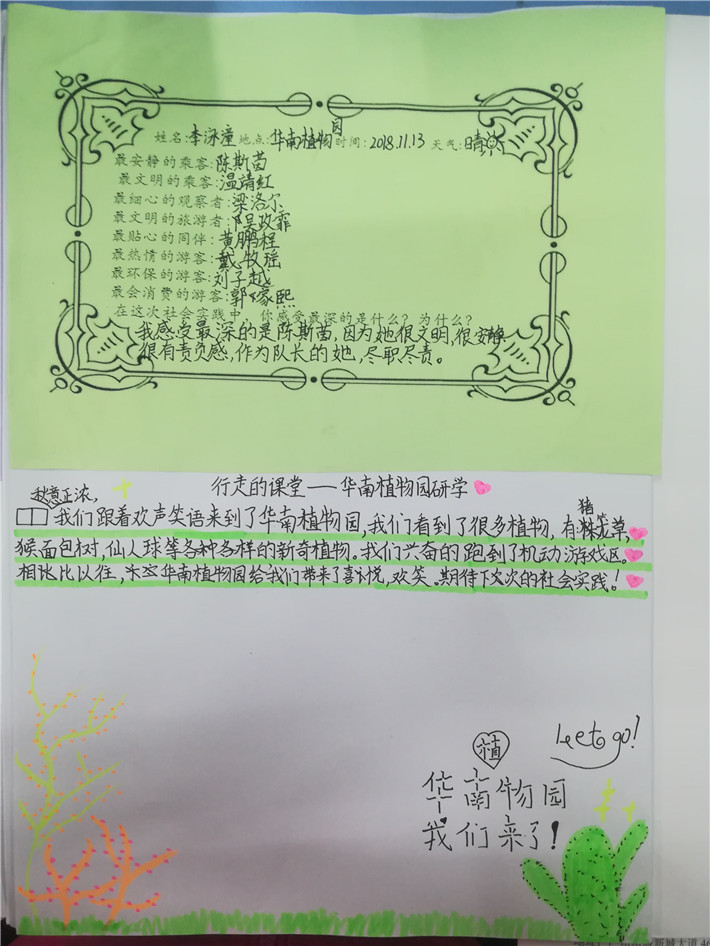 姓名:李泳潼 地点:华南植物园 时间:2018.11.13 天气:晴
最安静的乘客:陈斯苗
最文明的乘客:温靖红
最细心的观察者:梁洛尔
最文明的旅游者:陽政霏
最贴心的同伴:黄鹏程
最热情的游客:戴牧瑶
最环保的游客:刘子越
最会消费的游客:郭家熙
在这次社会实践中,你感受最深的是什么?为什么?
我感受最深的是陈斯苗,因为她很文明,很安静
很有责负感,作为队长的她,尽职尽责。
行走的课堂——华南植物园研学
秋意正浓,
我们跟着欢声笑语来到了华南植物园,我们看到了很多植物,有猪笼草,
猴面包树,仙人球等各种各样的新奇植物。我们兴奋的跑到了机动游戏区。
相比以往,华南植物园给我们带来了喜悦,欢笑.期待下次的社会实践!
Leets go!
植
华南物园
我们来了!
新城大道